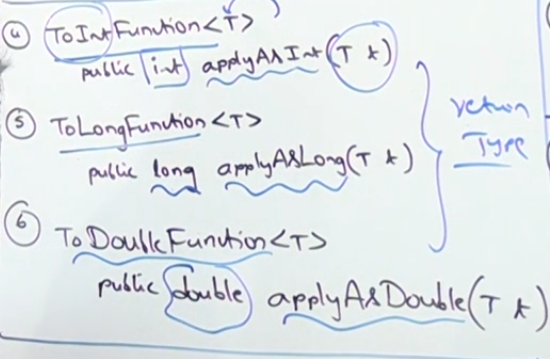 4 ToIntFunction<T>
public int applyAsInt(T t)
5 ToLongFunction<T>
public long applyAsLong(T t)
return
Type
6 ToDoubleFunction<T>
public double applyAsDouble(T t)